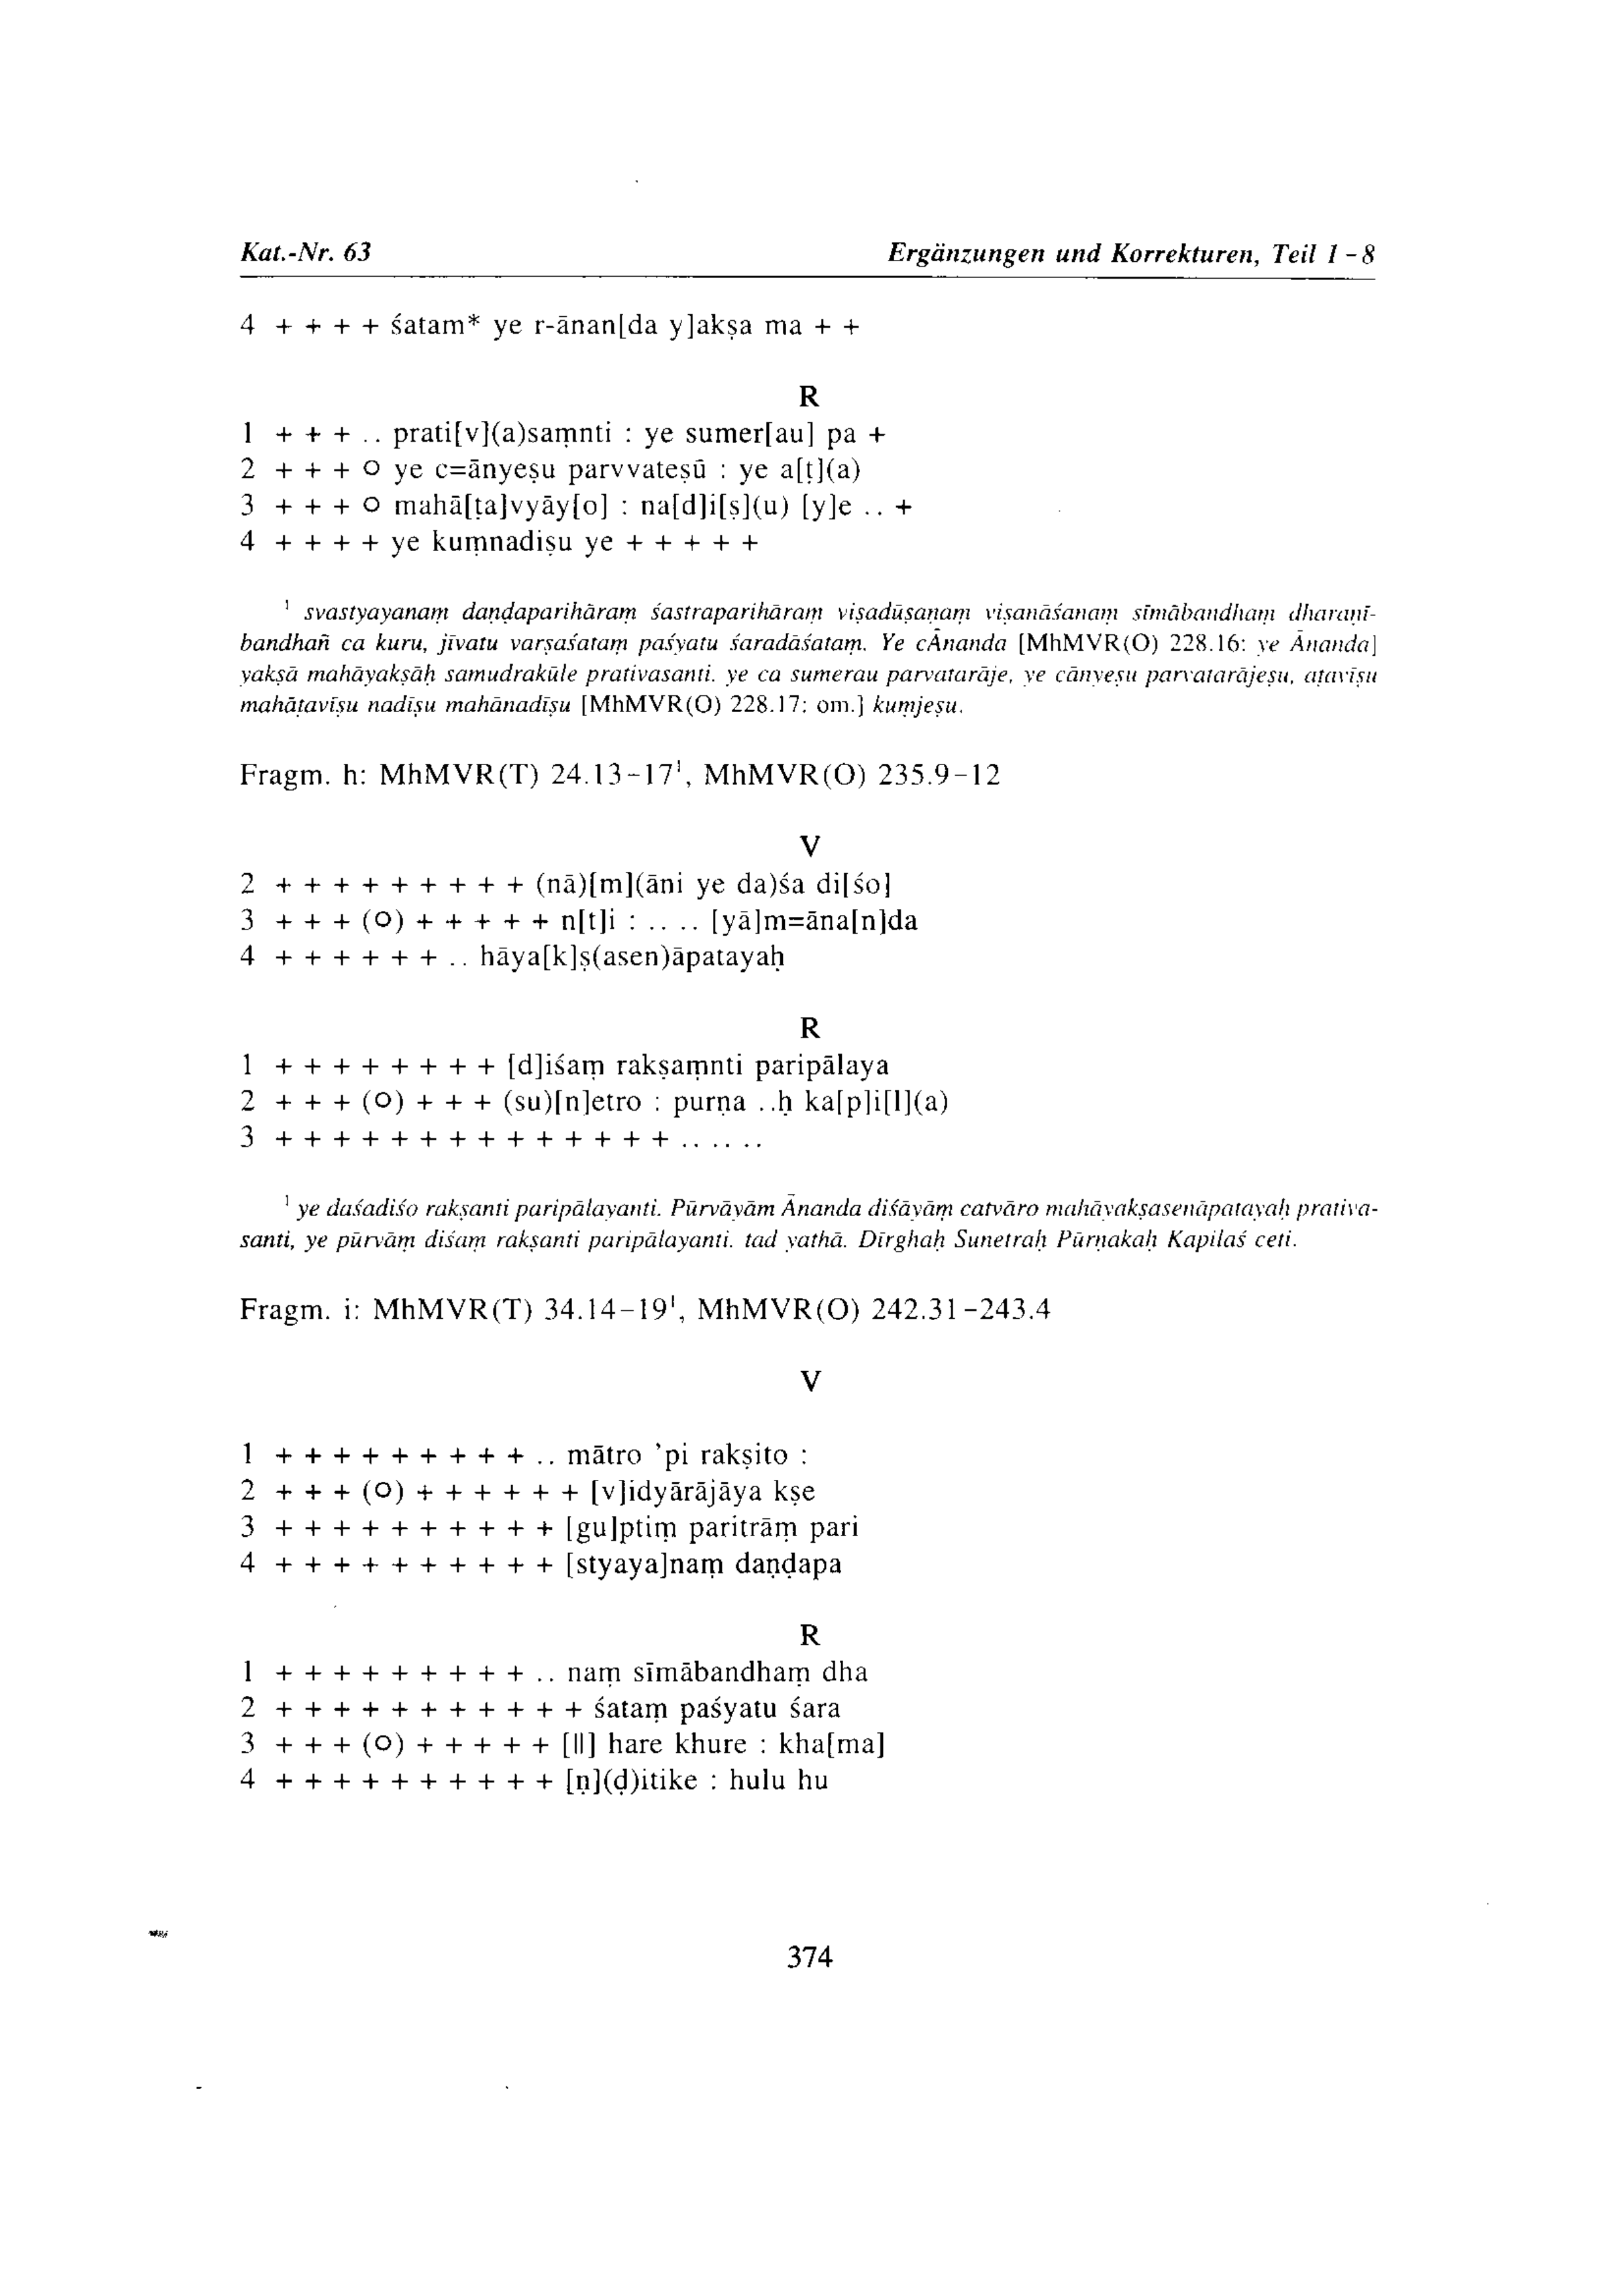 Kat.-Nr. 63 Ergänzungen und Korrekturen, Teil 1-8
4 + + + + śatam* ye r-ānan[da y]akṣa ma + +
R
1 + + + .. prati[v](a)saṃnti : ye sumer[au] pa +
2 + + + O ye c=ānyeṣu parvvateṣū : ye a[ṭ](a)
3 + + + O mahā[ṭa]vyāy[o] : na[d]i[ṣ](u) [y]e .. +
4 + + + + ye kuṃnadiṣu ye + + + + +
¹ svastyayanaṃ daṇḍaparihāraṃ śastraparihāraṃ viṣadūṣaṇaṃ viṣanāśanaṃ sīmābandhaṃ dharaṇī-
bandhañ ca kuru, jīvatu varṣaśataṃ paśyatu śaradāśataṃ. Ye cĀnanda [MhMVR(O) 228.16: ye Ānanda]
yakṣā mahāyakṣāḥ samudrakūle prativasanti. ye ca sumerau parvatarāje, ye cānyeṣu parvatarājeṣu, aṭavīṣu
mahāṭavīṣu nadīṣu mahānadīṣu [MhMVR(O) 228.17: om.] kuṃjeṣu.
Fragm. h: MhMVR(T) 24.13-17¹, MhMVR(O) 235.9-12
V
2 + + + + + + + + + (nā)[m](āni ye da)śa di[śo]
3 + + + (O) + + + + + n[t]i : .. .. [yā]m=āna[n]da
4 + + + + + + .. hāya[k]ṣ(asen)āpatayaḥ
R
1 + + + + + + + + [d]iśaṃ rakṣaṃnti paripālaya
2 + + + (O) + + + (su)[n]etro : purṇa ..ḥ ka[p]i[l](a)
3 + + + + + + + + + + + + + + .. .. ..
¹ ye daśadiśo rakṣanti paripālayanti. Pūrvāyām Ānanda diśāyāṃ catvāro mahāyakṣasenāpatayaḥ prativa-
santi, ye pūrvāṃ diśaṃ rakṣanti paripālayanti. tad yathā. Dīrghaḥ Sunetraḥ Pūrṇakaḥ Kapilaś ceti.
Fragm. i: MhMVR(T) 34.14-19¹, MhMVR(O) 242.31-243.4
V
1 + + + + + + + + + .. mātro ’pi rakṣito :
2 + + + (O) + + + + + + [v]idyārājāya kṣe
3 + + + + + + + + + + [gu]ptiṃ paritrāṃ pari
4 + + + + + + + + + + [styaya]naṃ daṇḍapa
R
1 + + + + + + + + + .. naṃ sīmābandhaṃ dha
2 + + + + + + + + + + + śataṃ paśyatu śara
3 + + + (O) + + + + + [||] hare khure : kha[ma]
4 + + + + + + + + + + [ṇ](ḍ)itike : hulu hu
374